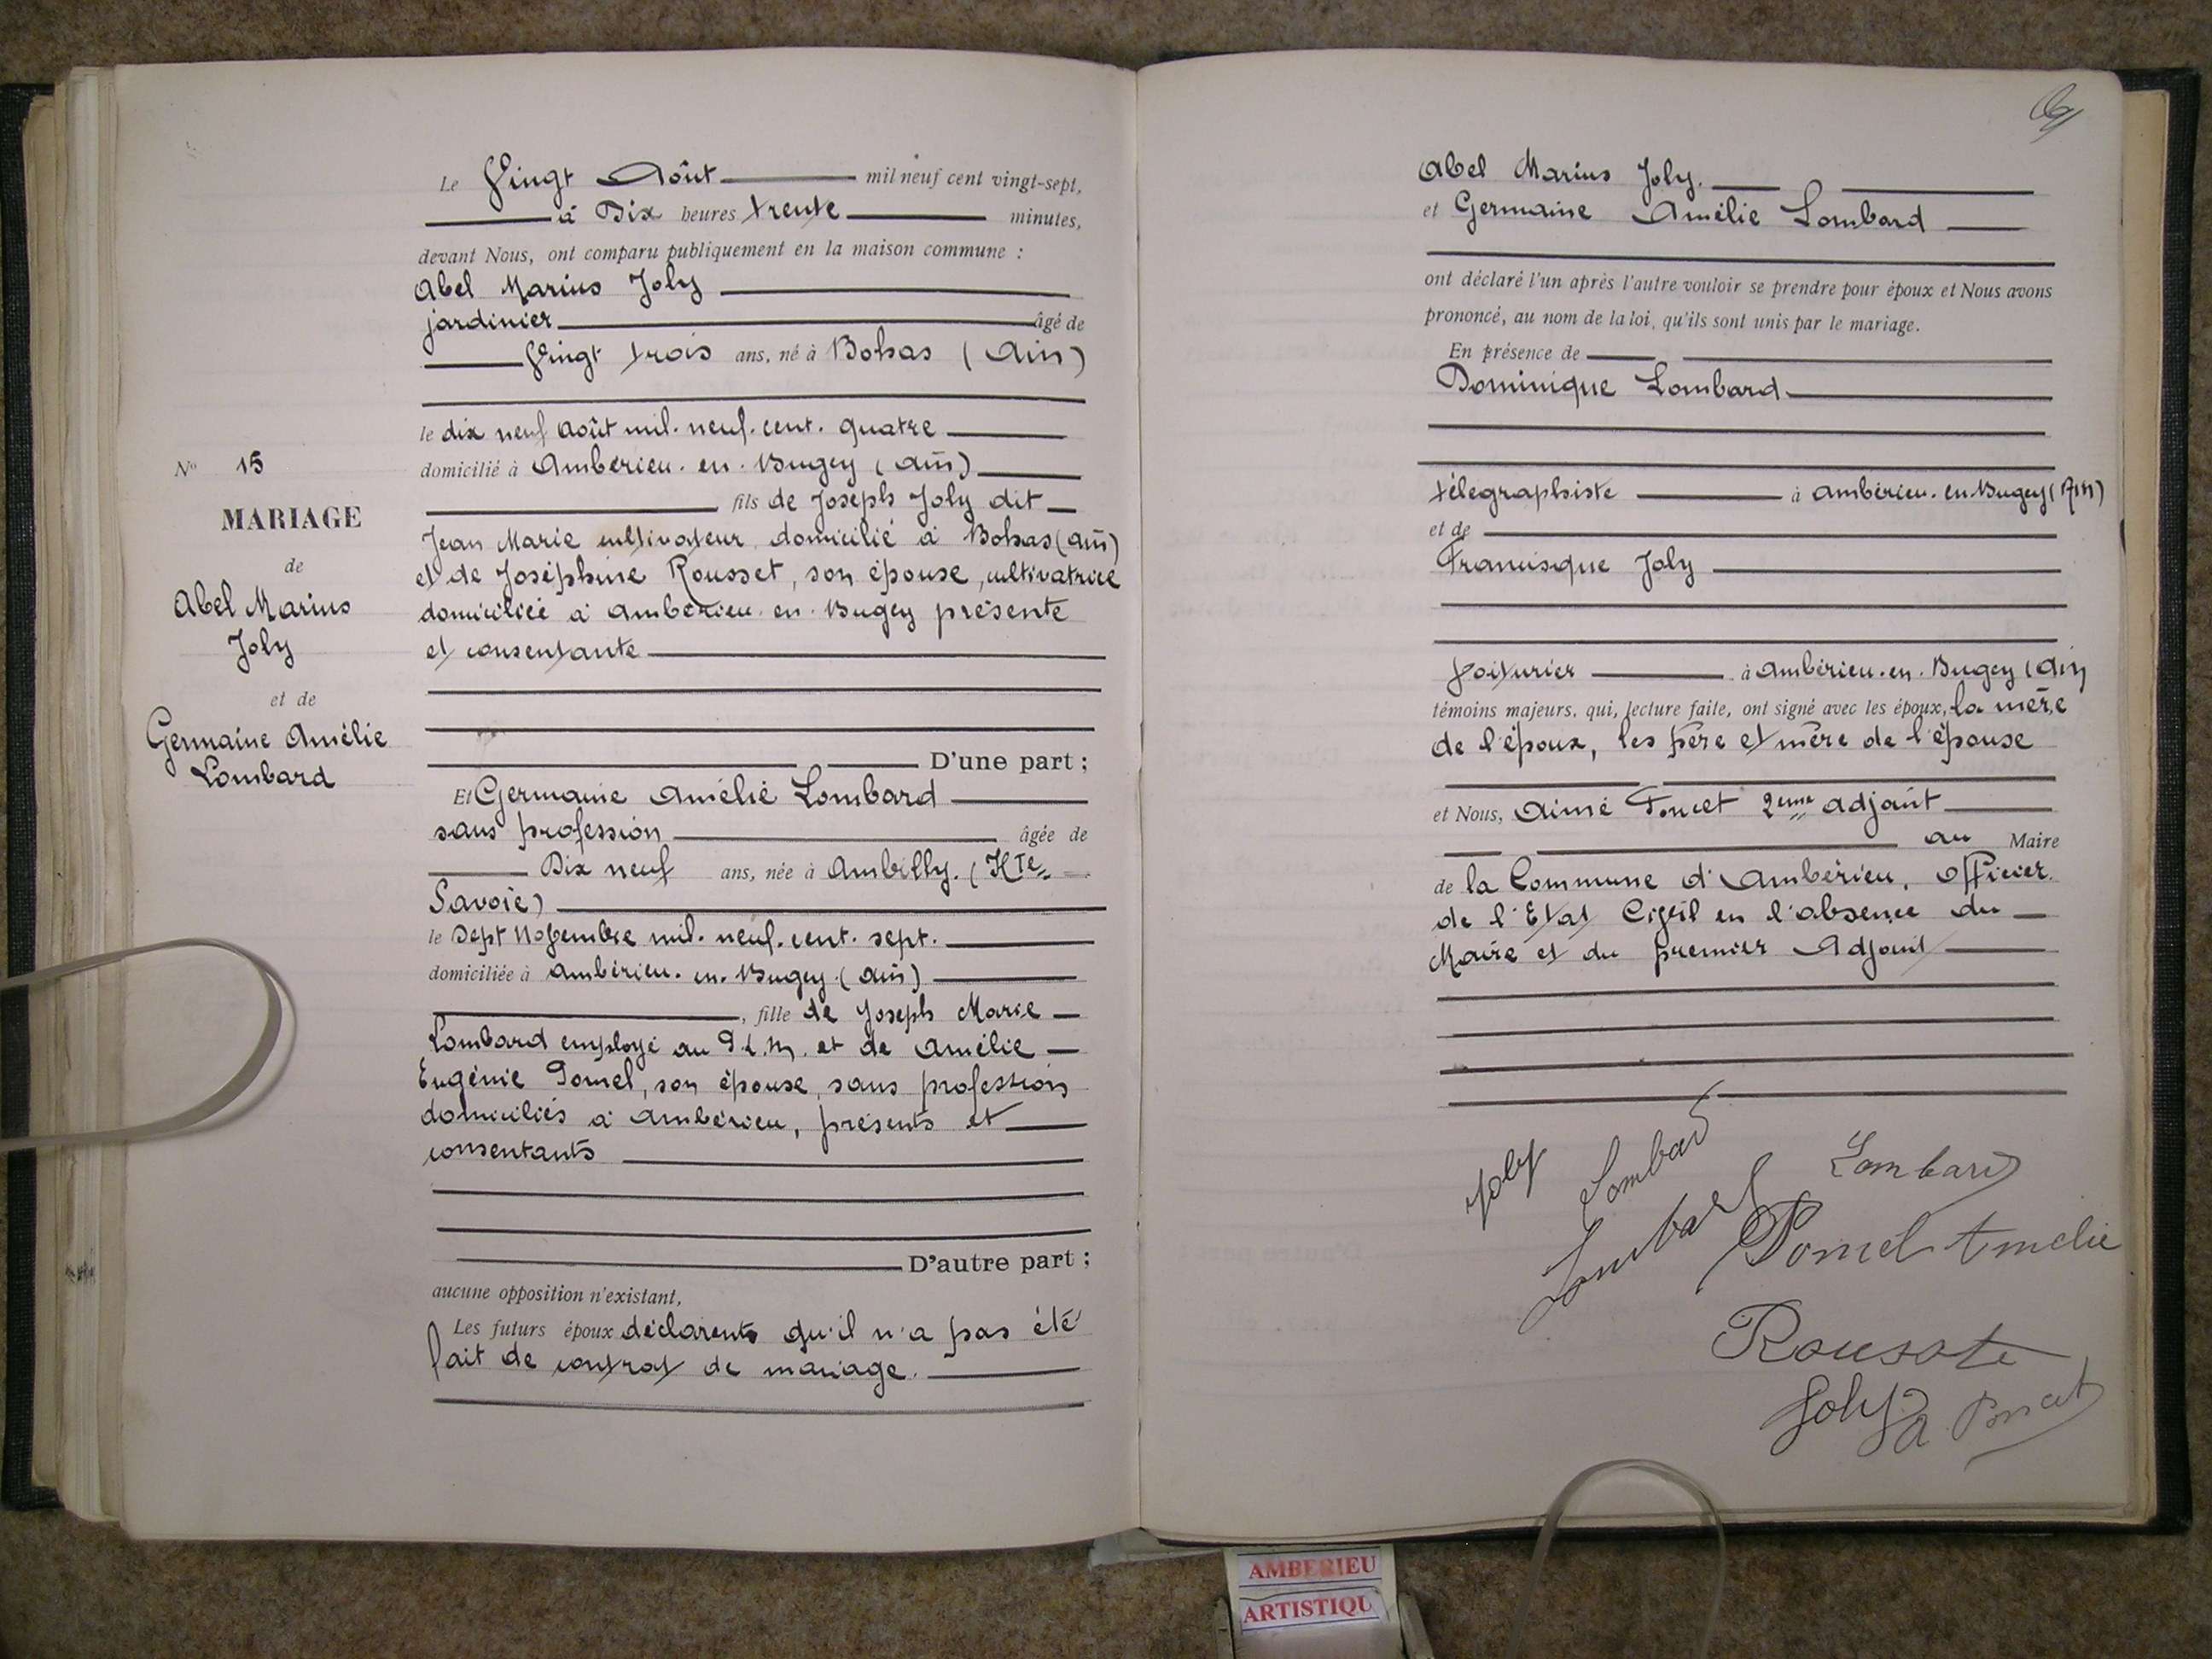 Le Vingt Août mil neuf cent vingt-sept,
à Dix heures trente minutes,
devant Nous, ont comparu publiquement en la maison commune :
Abel Marius Joly
jardinier âgé de
Vingt trois ans, né à Bohas (Ain)
le dix neuf Août mil. neuf. cent. quatre
domicilié à Ambérieu. en. Bugey (Ain)
fils de Joseph Joly dit
Jean Marie cultivateur domicilié à Bohas (Ain)
et de Joséphine Rousset, son épouse, cultivatrice
domiciliée à Ambérieu. en. Bugey présente
et consentante
D'une part ;
Et Germaine Amélie Lombard
sans profession âgée de
Dix neuf ans, née à Ambilly. (Hte
Savoie)
le Sept Novembre mil. neuf. cent. sept.
domiciliée à Ambérieu. en. Bugey. (Ain)
, fille de Joseph Marie
Lombard employé au P.L.M. et de Amélie
Eugénie Pomel, son épouse, sans profession
domiciliés à Ambérieu, présents et
consentants
D'autre part ;
aucune opposition n'existant,
Les futurs époux déclarent qu'il n'a pas été
fait de contrat de mariage.
No 15
MARIAGE
de
Abel Marius
Joly
et de
Germaine Amélie
Lombard
Abel Marius Joly.
et Germaine Amélie Lombard
ont déclaré l'un après l'autre vouloir se prendre pour époux et Nous avons
prononcé, au nom de la loi, qu'ils sont unis par le mariage.
En présence de
Dominique Lombard
télégraphiste à Ambérieu. en. Bugey (Ain)
et de
Francisque Joly
Voiturier à Ambérieu. en. Bugey (Ain)
témoins majeurs, qui, lecture faite, ont signé avec les époux, la mère
de l'époux, les père et mère de l'épouse
et Nous, Aimé Poncet 2eme adjoint
au Maire
de la Commune d'Ambérieu, Officier
de l'Etat Civil en l'absence du
Maire et du premier Adjoint
Joly
Lombard
Lombard
Lombard
Pomel Amelie
Joly
A Poncet
AMBERIEU
ARTISTIQU